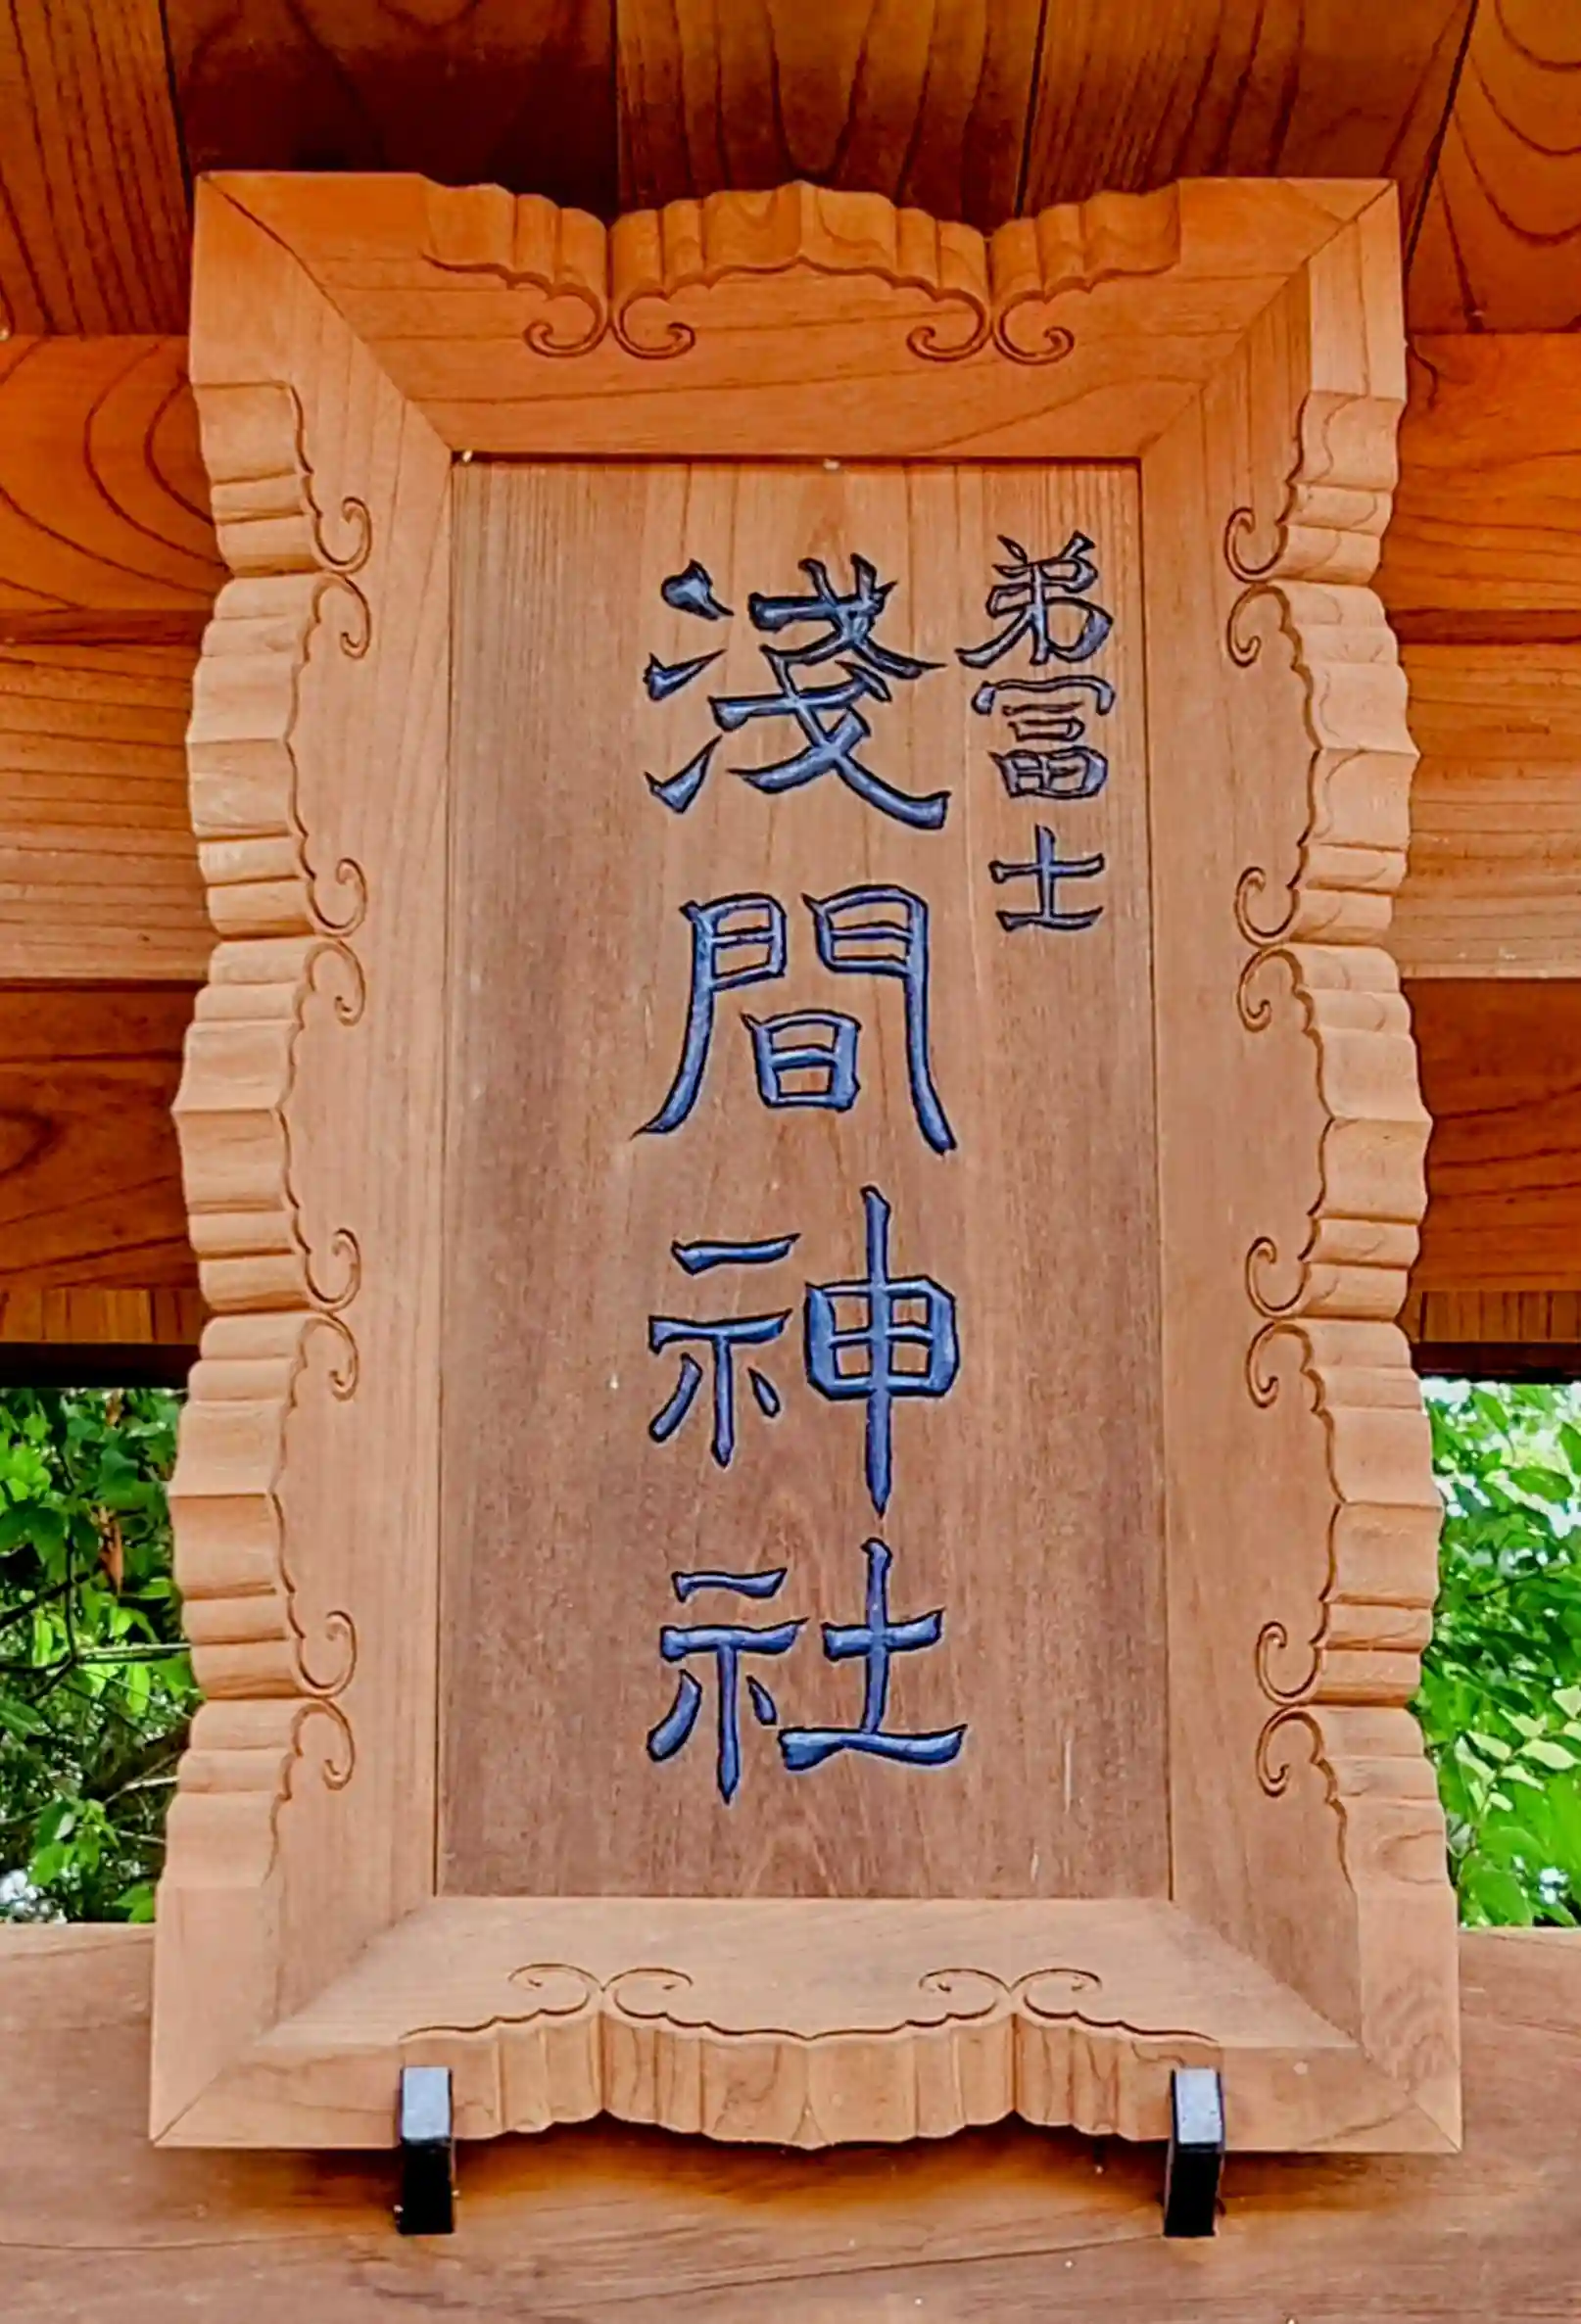 弟冨士
淺間神社